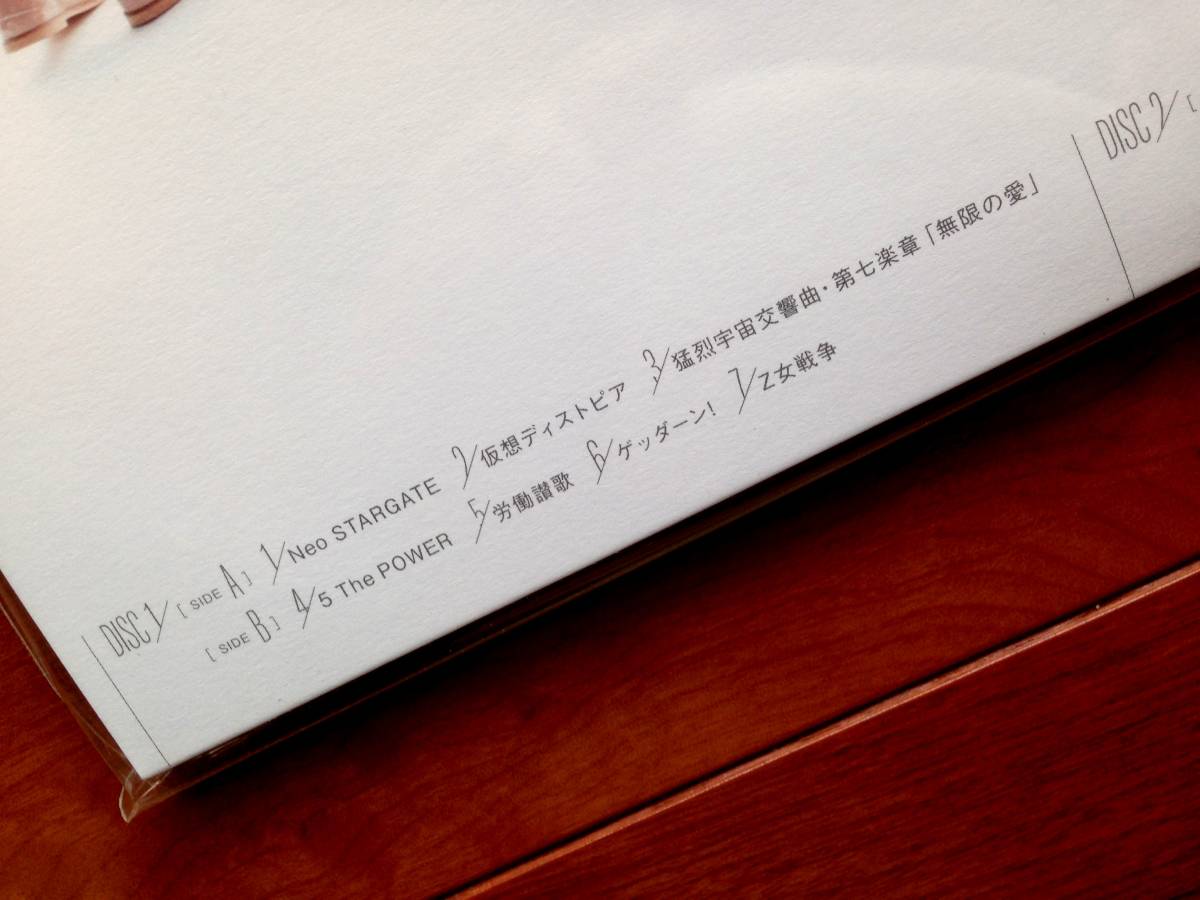 DISC 1/ [ SIDE A ] 1/Neo STARGATE 2/仮想ディストピア 3/猛烈宇宙交響曲・第七楽章「無限の愛」
[ SIDE B ] 4/5 The POWER 5/労働讃歌 6/ゲッダーン! 7/Z女戦争
DISC 2/ [